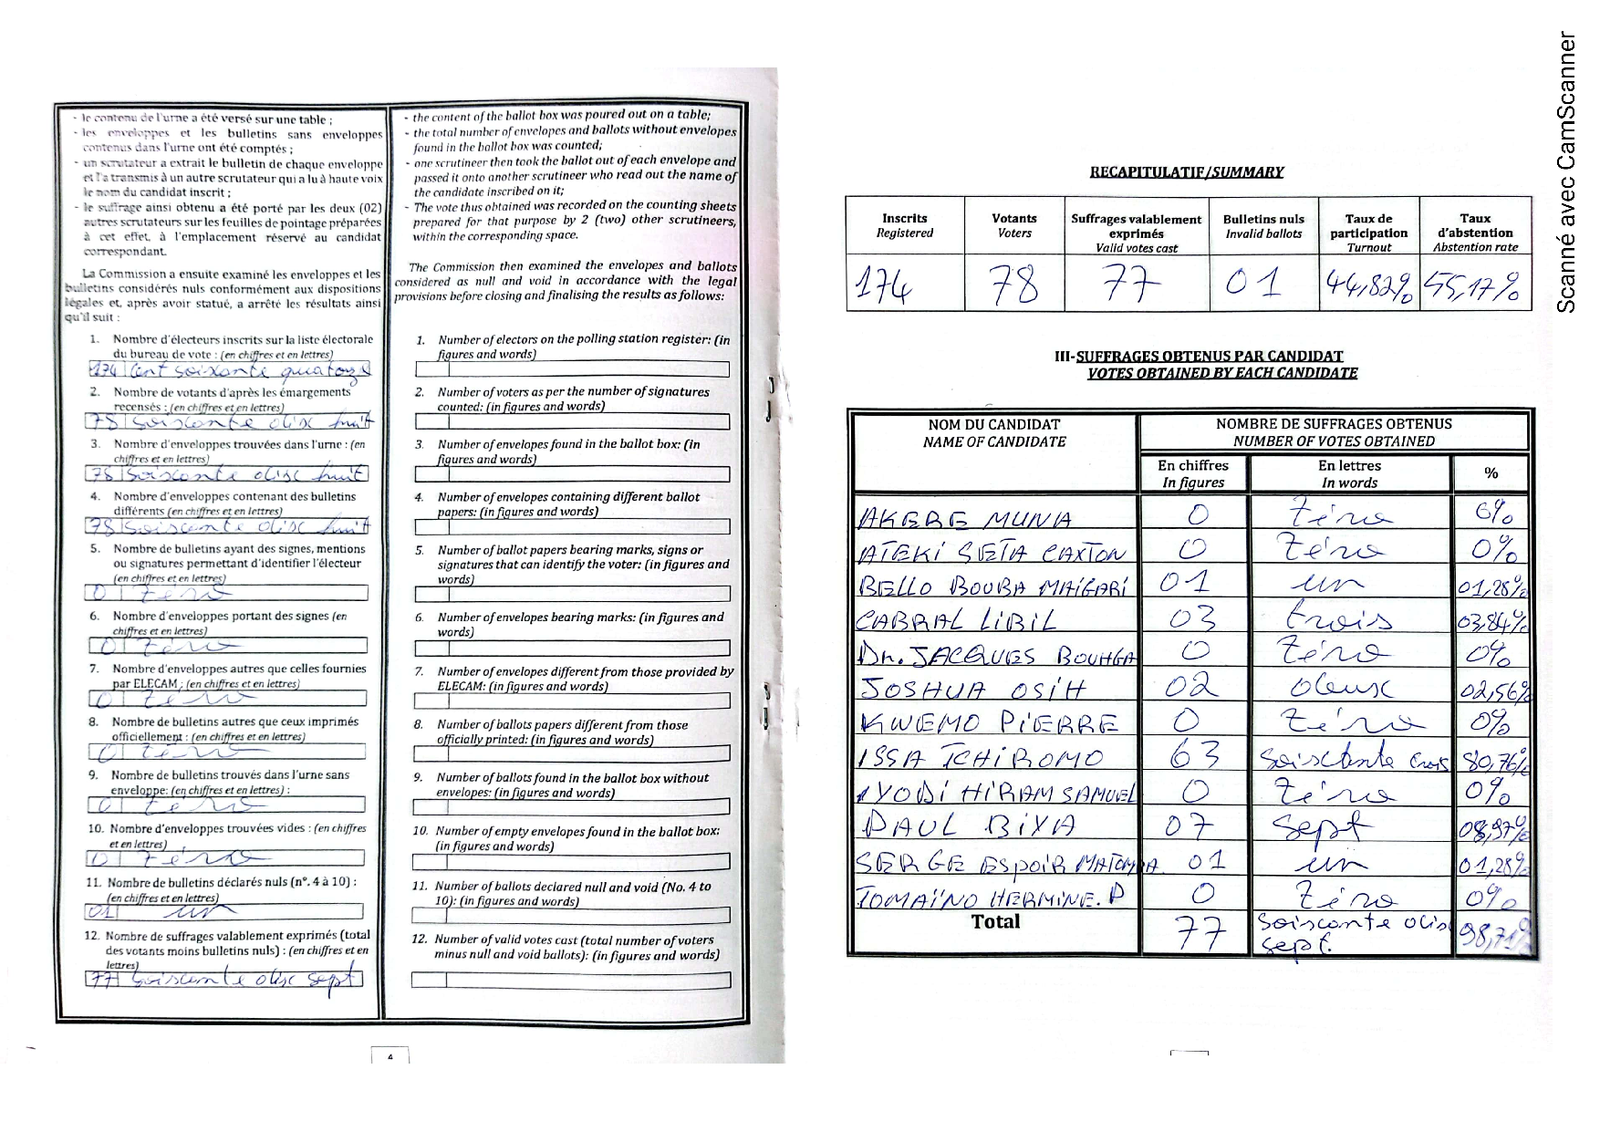 - le contenu de l'urne a été versé sur une table ;
- les enveloppes et les bulletins sans enveloppes
contenus dans l'urne ont été comptés ;
- un scrutateur a extrait le bulletin de chaque enveloppe
et l'a transmis à un autre scrutateur qui a lu à haute voix
le nom du candidat inscrit ;
- le suffrage ainsi obtenu a été porté par les deux (02)
autres scrutateurs sur les feuilles de pointage préparées
à cet effet, à l'emplacement réservé au candidat
correspondant.
La Commission a ensuite examiné les enveloppes et les
bulletins considérés nuls conformément aux dispositions
légales et, après avoir statué, a arrêté les résultats ainsi
qu'il suit :
1. Nombre d'électeurs inscrits sur la liste électorale
du bureau de vote : (en chiffres et en lettres)
174 Cent soixante quatorze
2. Nombre de votants d'après les émargements
recensés : (en chiffres et en lettres)
78 Soiscante disc huit
3. Nombre d'enveloppes trouvées dans l'urne : (en
chiffres et en lettres)
78 Soiscante disc huit
4. Nombre d'enveloppes contenant des bulletins
différents (en chiffres et en lettres)
78 Soiscante disc huit
5. Nombre de bulletins ayant des signes, mentions
ou signatures permettant d'identifier l'électeur
(en chiffres et en lettres)
0 Zéro
6. Nombre d'enveloppes portant des signes (en
chiffres et en lettres)
0 Zéro
7. Nombre d'enveloppes autres que celles fournies
par ELECAM : (en chiffres et en lettres)
0 Zéro
8. Nombre de bulletins autres que ceux imprimés
officiellement : (en chiffres et en lettres)
0 Zéro
9. Nombre de bulletins trouvés dans l'urne sans
enveloppe: (en chiffres et en lettres) :
0 Zéro
10. Nombre d'enveloppes trouvées vides : (en chiffres
et en lettres)
0 Zéro
11. Nombre de bulletins déclarés nuls (n°. 4 à 10) :
(en chiffres et en lettres)
01 un
12. Nombre de suffrages valablement exprimés (total
des votants moins bulletins nuls) : (en chiffres et en
lettres)
77 Soiscante disc sept
- the content of the ballot box was poured out on a table;
- the total number of envelopes and ballots without envelopes
found in the ballot box was counted;
- one scrutineer then took the ballot out of each envelope and
passed it onto another scrutineer who read out the name of
the candidate inscribed on it;
- The vote thus obtained was recorded on the counting sheets
prepared for that purpose by 2 (two) other scrutineers,
within the corresponding space.
The Commission then examined the envelopes and ballots
considered as null and void in accordance with the legal
provisions before closing and finalising the results as follows:
1. Number of electors on the polling station register: (in
figures and words)
2. Number of voters as per the number of signatures
counted: (in figures and words)
3. Number of envelopes found in the ballot box: (in
figures and words)
4. Number of envelopes containing different ballot
papers: (in figures and words)
5. Number of ballot papers bearing marks, signs or
signatures that can identify the voter: (in figures and
words)
6. Number of envelopes bearing marks: (in figures and
words)
7. Number of envelopes different from those provided by
ELECAM: (in figures and words)
8. Number of ballots papers different from those
officially printed: (in figures and words)
9. Number of ballots found in the ballot box without
envelopes: (in figures and words)
10. Number of empty envelopes found in the ballot box:
(in figures and words)
11. Number of ballots declared null and void (No. 4 to
10): (in figures and words)
12. Number of valid votes cast (total number of voters
minus null and void ballots): (in figures and words)
4
RECAPITULATIF/SUMMARY
Inscrits Votants Suffrages valablement Bulletins nuls Taux de Taux
Registered Voters exprimés Invalid ballots participation d'abstention
Valid votes cast Turnout Abstention rate
174 78 77 01 44,82% 55,17%
III-SUFFRAGES OBTENUS PAR CANDIDAT
VOTES OBTAINED BY EACH CANDIDATE
NOM DU CANDIDAT NOMBRE DE SUFFRAGES OBTENUS
NAME OF CANDIDATE NUMBER OF VOTES OBTAINED
En chiffres En lettres %
In figures In words
AKERE MUNA 0 Zéro 0%
ATEKI SETA CAXTON 0 Zéro 0%
BELLO BOUBA MAIGARI 01 un 01,28%
CABRAL LIBIL 03 trois 03,84%
Dr. JACQUES BOUHGA 0 Zéro 0%
JOSHUA OSIH 02 deusc 02,56%
KWEMO PIERRE 0 Zéro 0%
ISSA TCHIROMO 63 Soiscante trois 80,76%
IYODI HIRAM SAMUEL 0 Zéro 0%
PAUL BIYA 07 sept 08,97%
SERGE ESPOIR MATOMBA 01 un 01,28%
TOMAÏNO HERMINE. P 0 Zéro 0%
Total 77 Soiscante disc sept. 98,71%
Scanné avec CamScanner